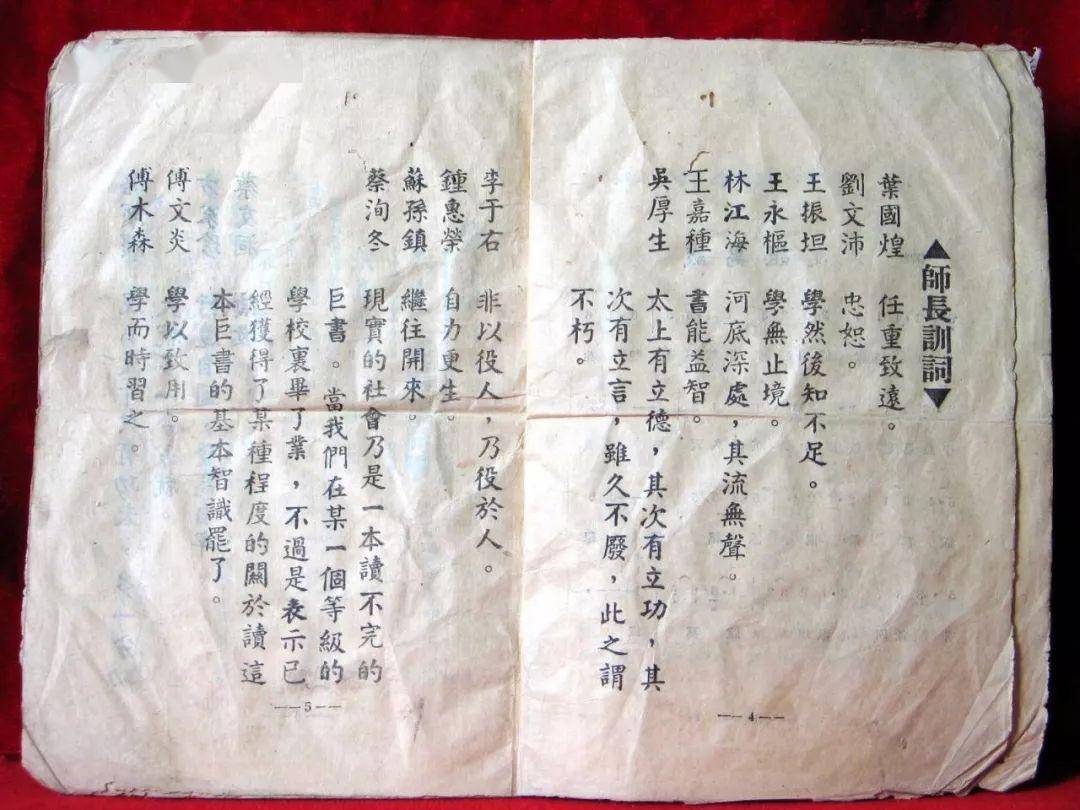 ▲師長訓詞▼
葉國煌 任重致遠。
劉文沛 忠恕。
王振坦 學然後知不足。
王永樞 學無止境。
林江海 河底深處，其流無聲。
王嘉種 書能益智。
吳厚生 太上有立德，其次有立功，其
次有立言，雖久不廢，此之謂
不朽。
—4—
李于右 非以役人，乃役於人。
鍾惠榮 自力更生。
蘇孫鎮 繼往開來。
蔡洵冬 現實的社會乃是一本讀不完的
巨書。當我們在某一個等級的
學校裏畢了業，不過是表示已
經獲得了某種程度的關於讀這
本巨書的基本智識罷了。
傅文炎 學以致用。
傅木森 學而時習之。
—5—